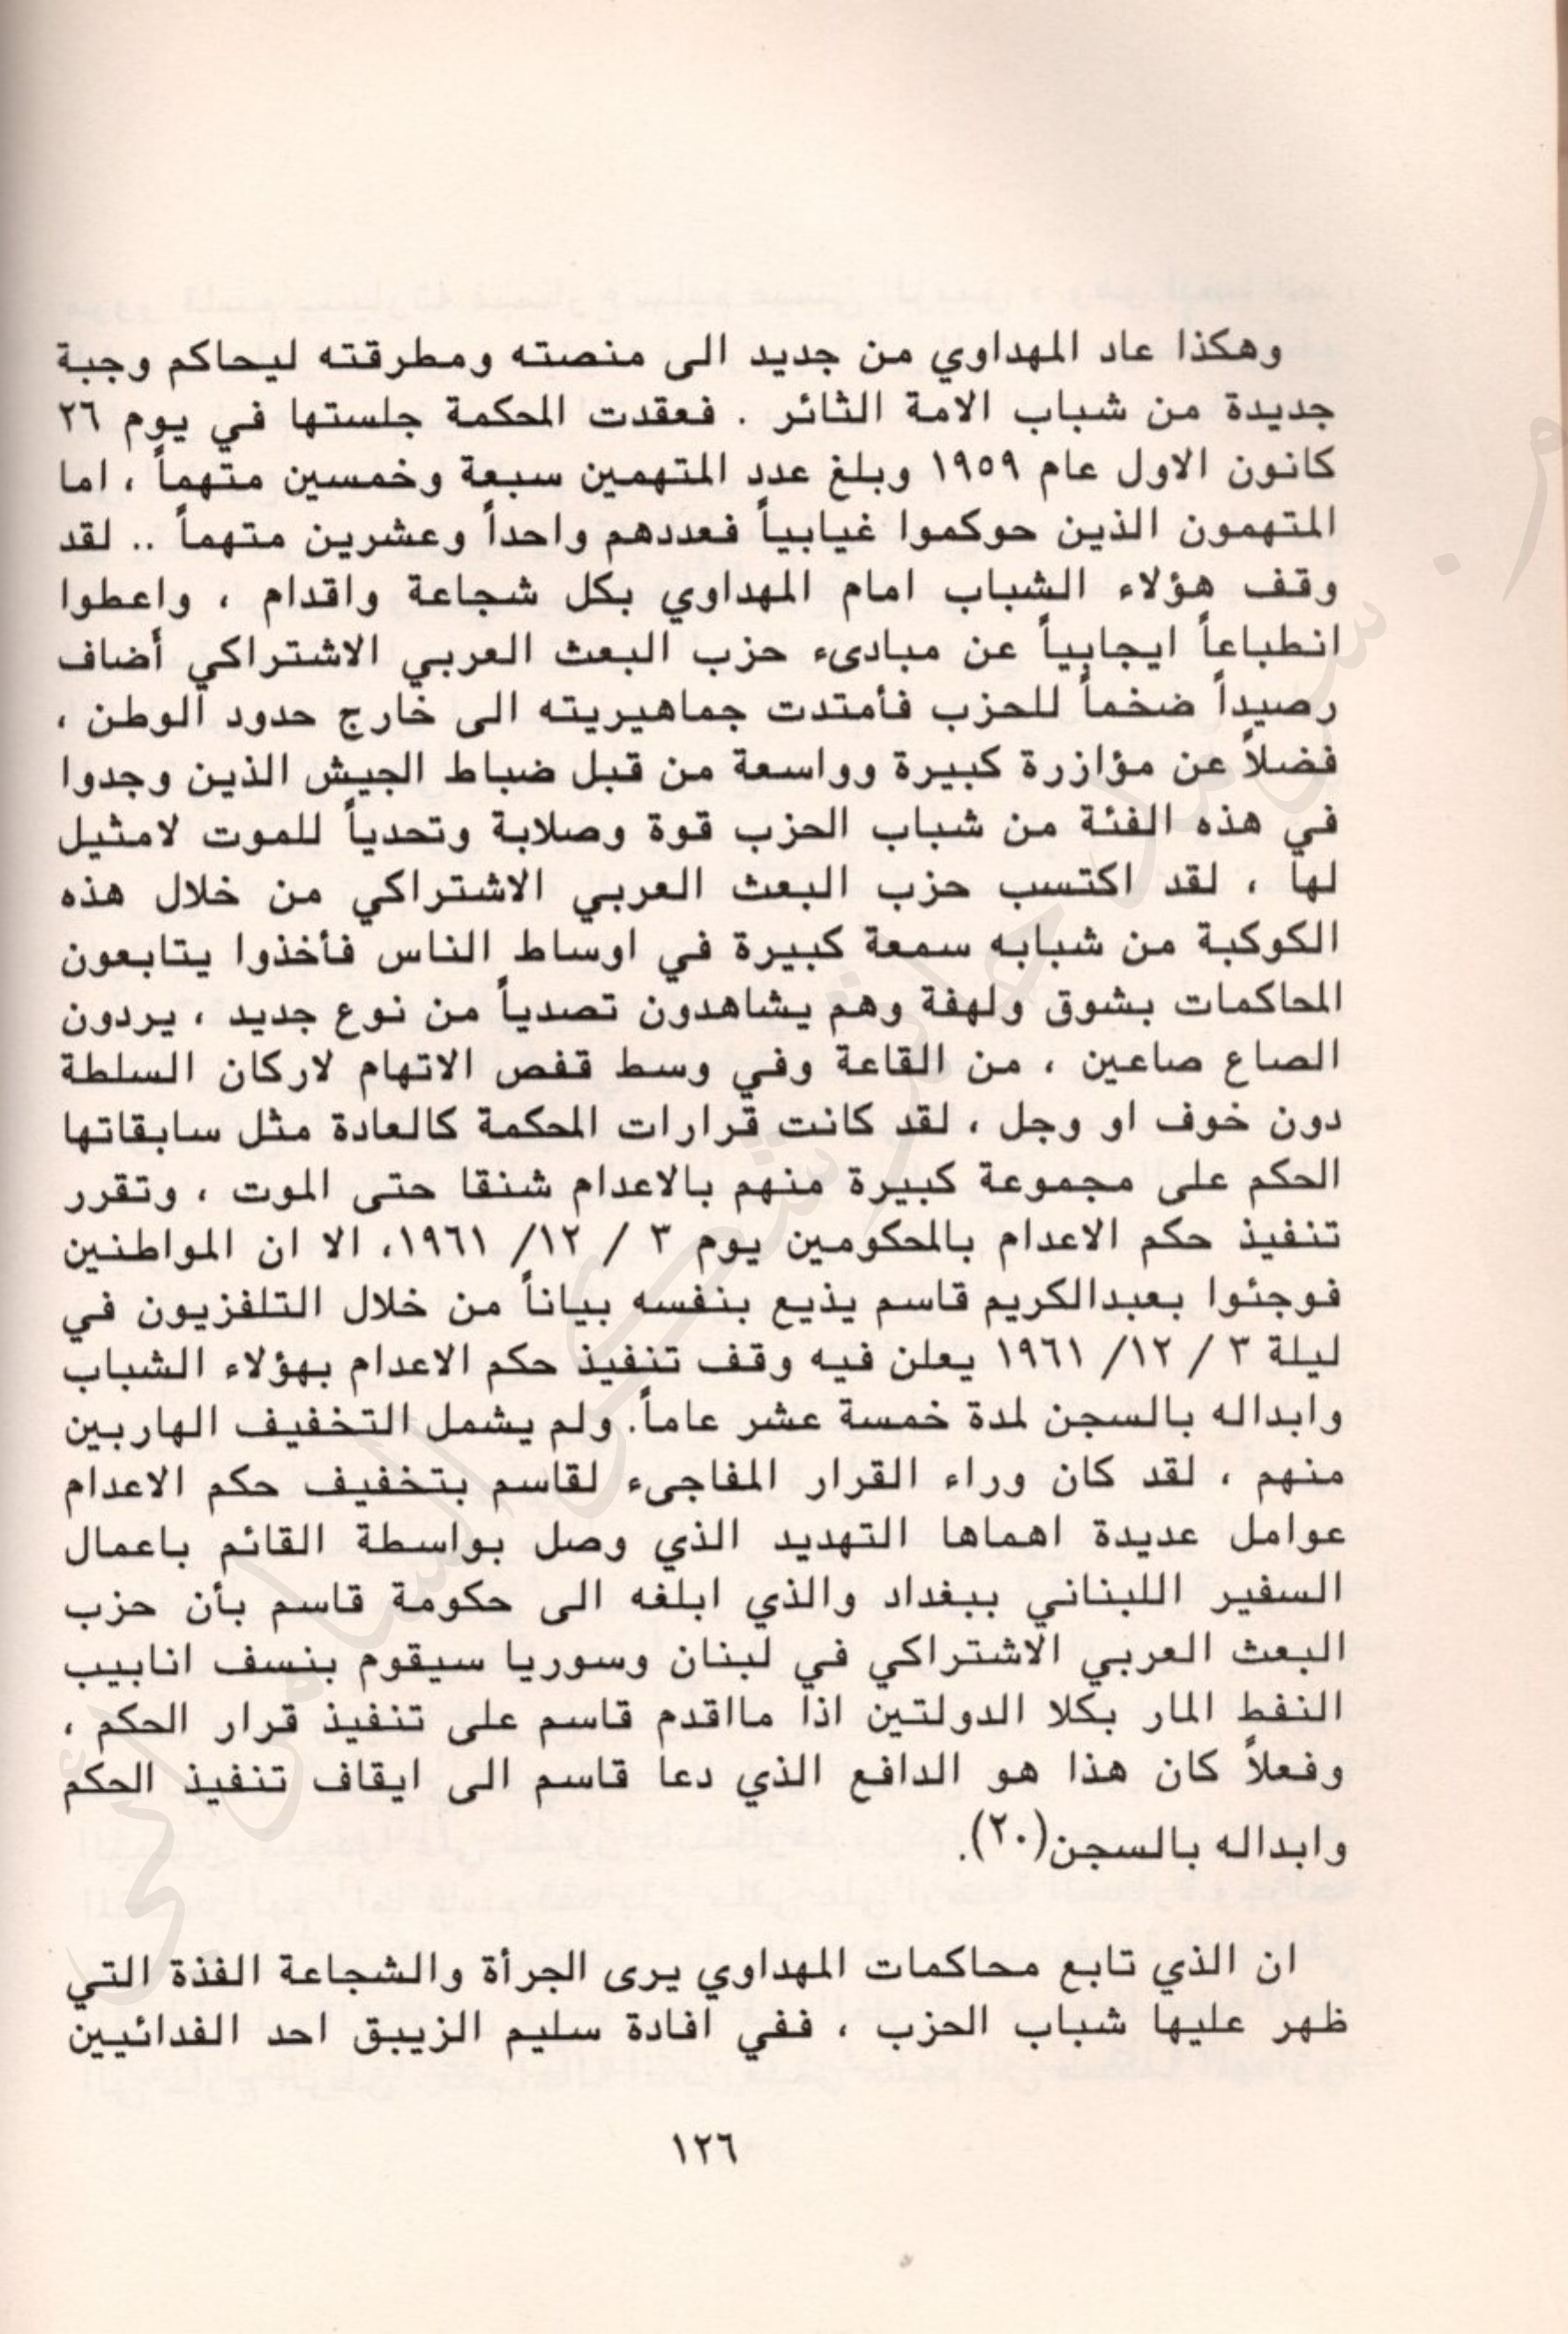 وهكذا عاد المهداوي من جديد الى منصته ومطرقته ليحاكم وجبة
جديدة من شباب الامة الثائر . فعقدت المحكمة جلستها في يوم ٢٦
كانون الاول عام ١٩٥٩ وبلغ عدد المتهمين سبعة وخمسين متهماً ، اما
المتهمون الذين حوكموا غيابياً فعددهم واحداً وعشرين متهماً .. لقد
وقف هؤلاء الشباب امام المهداوي بكل شجاعة واقدام ، واعطوا
انطباعاً ايجابياً عن مبادىء حزب البعث العربي الاشتراكي أضاف
رصيداً ضخماً للحزب فأمتدت جماهيريته الى خارج حدود الوطن ،
فضلاً عن مؤازرة كبيرة وواسعة من قبل ضباط الجيش الذين وجدوا
في هذه الفئة من شباب الحزب قوة وصلابة وتحدياً للموت لامثيل
لها ، لقد اكتسب حزب البعث العربي الاشتراكي من خلال هذه
الكوكبة من شبابه سمعة كبيرة في اوساط الناس فأخذوا يتابعون
المحاكمات بشوق ولهفة وهم يشاهدون تصدياً من نوع جديد ، يردون
الصاع صاعين ، من القاعة وفي وسط قفص الاتهام لاركان السلطة
دون خوف او وجل ، لقد كانت قرارات المحكمة كالعادة مثل سابقاتها
الحكم على مجموعة كبيرة منهم بالاعدام شنقا حتى الموت ، وتقرر
تنفيذ حكم الاعدام بالمحكومين يوم ٣ / ١٢/ ١٩٦١، الا ان المواطنين
فوجئوا بعبدالكريم قاسم يذيع بنفسه بياناً من خلال التلفزيون في
ليلة ٣ / ١٢/ ١٩٦١ يعلن فيه وقف تنفيذ حكم الاعدام بهؤلاء الشباب
وابداله بالسجن لمدة خمسة عشر عاماً. ولم يشمل التخفيف الهاربين
منهم ، لقد كان وراء القرار المفاجىء لقاسم بتخفيف حكم الاعدام
عوامل عديدة اهماها التهديد الذي وصل بواسطة القائم باعمال
السفير اللبناني ببغداد والذي ابلغه الى حكومة قاسم بأن حزب
البعث العربي الاشتراكي في لبنان وسوريا سيقوم بنسف انابيب
النفط المار بكلا الدولتين اذا مااقدم قاسم على تنفيذ قرار الحكم ،
وفعلاً كان هذا هو الدافع الذي دعا قاسم الى ايقاف تنفيذ الحكم
وابداله بالسجن(٢٠).
ان الذي تابع محاكمات المهداوي يرى الجرأة والشجاعة الفذة التي
ظهر عليها شباب الحزب ، ففي افادة سليم الزيبق احد الفدائيين
١٢٦